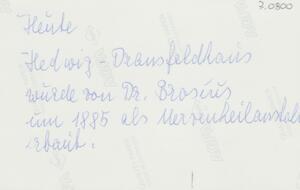 7.0800
Heute
Hedwig-Dransfeldhaus
wurde von Dr. Brosius
um 1885 als Nervenheilanstalt
erbaut.